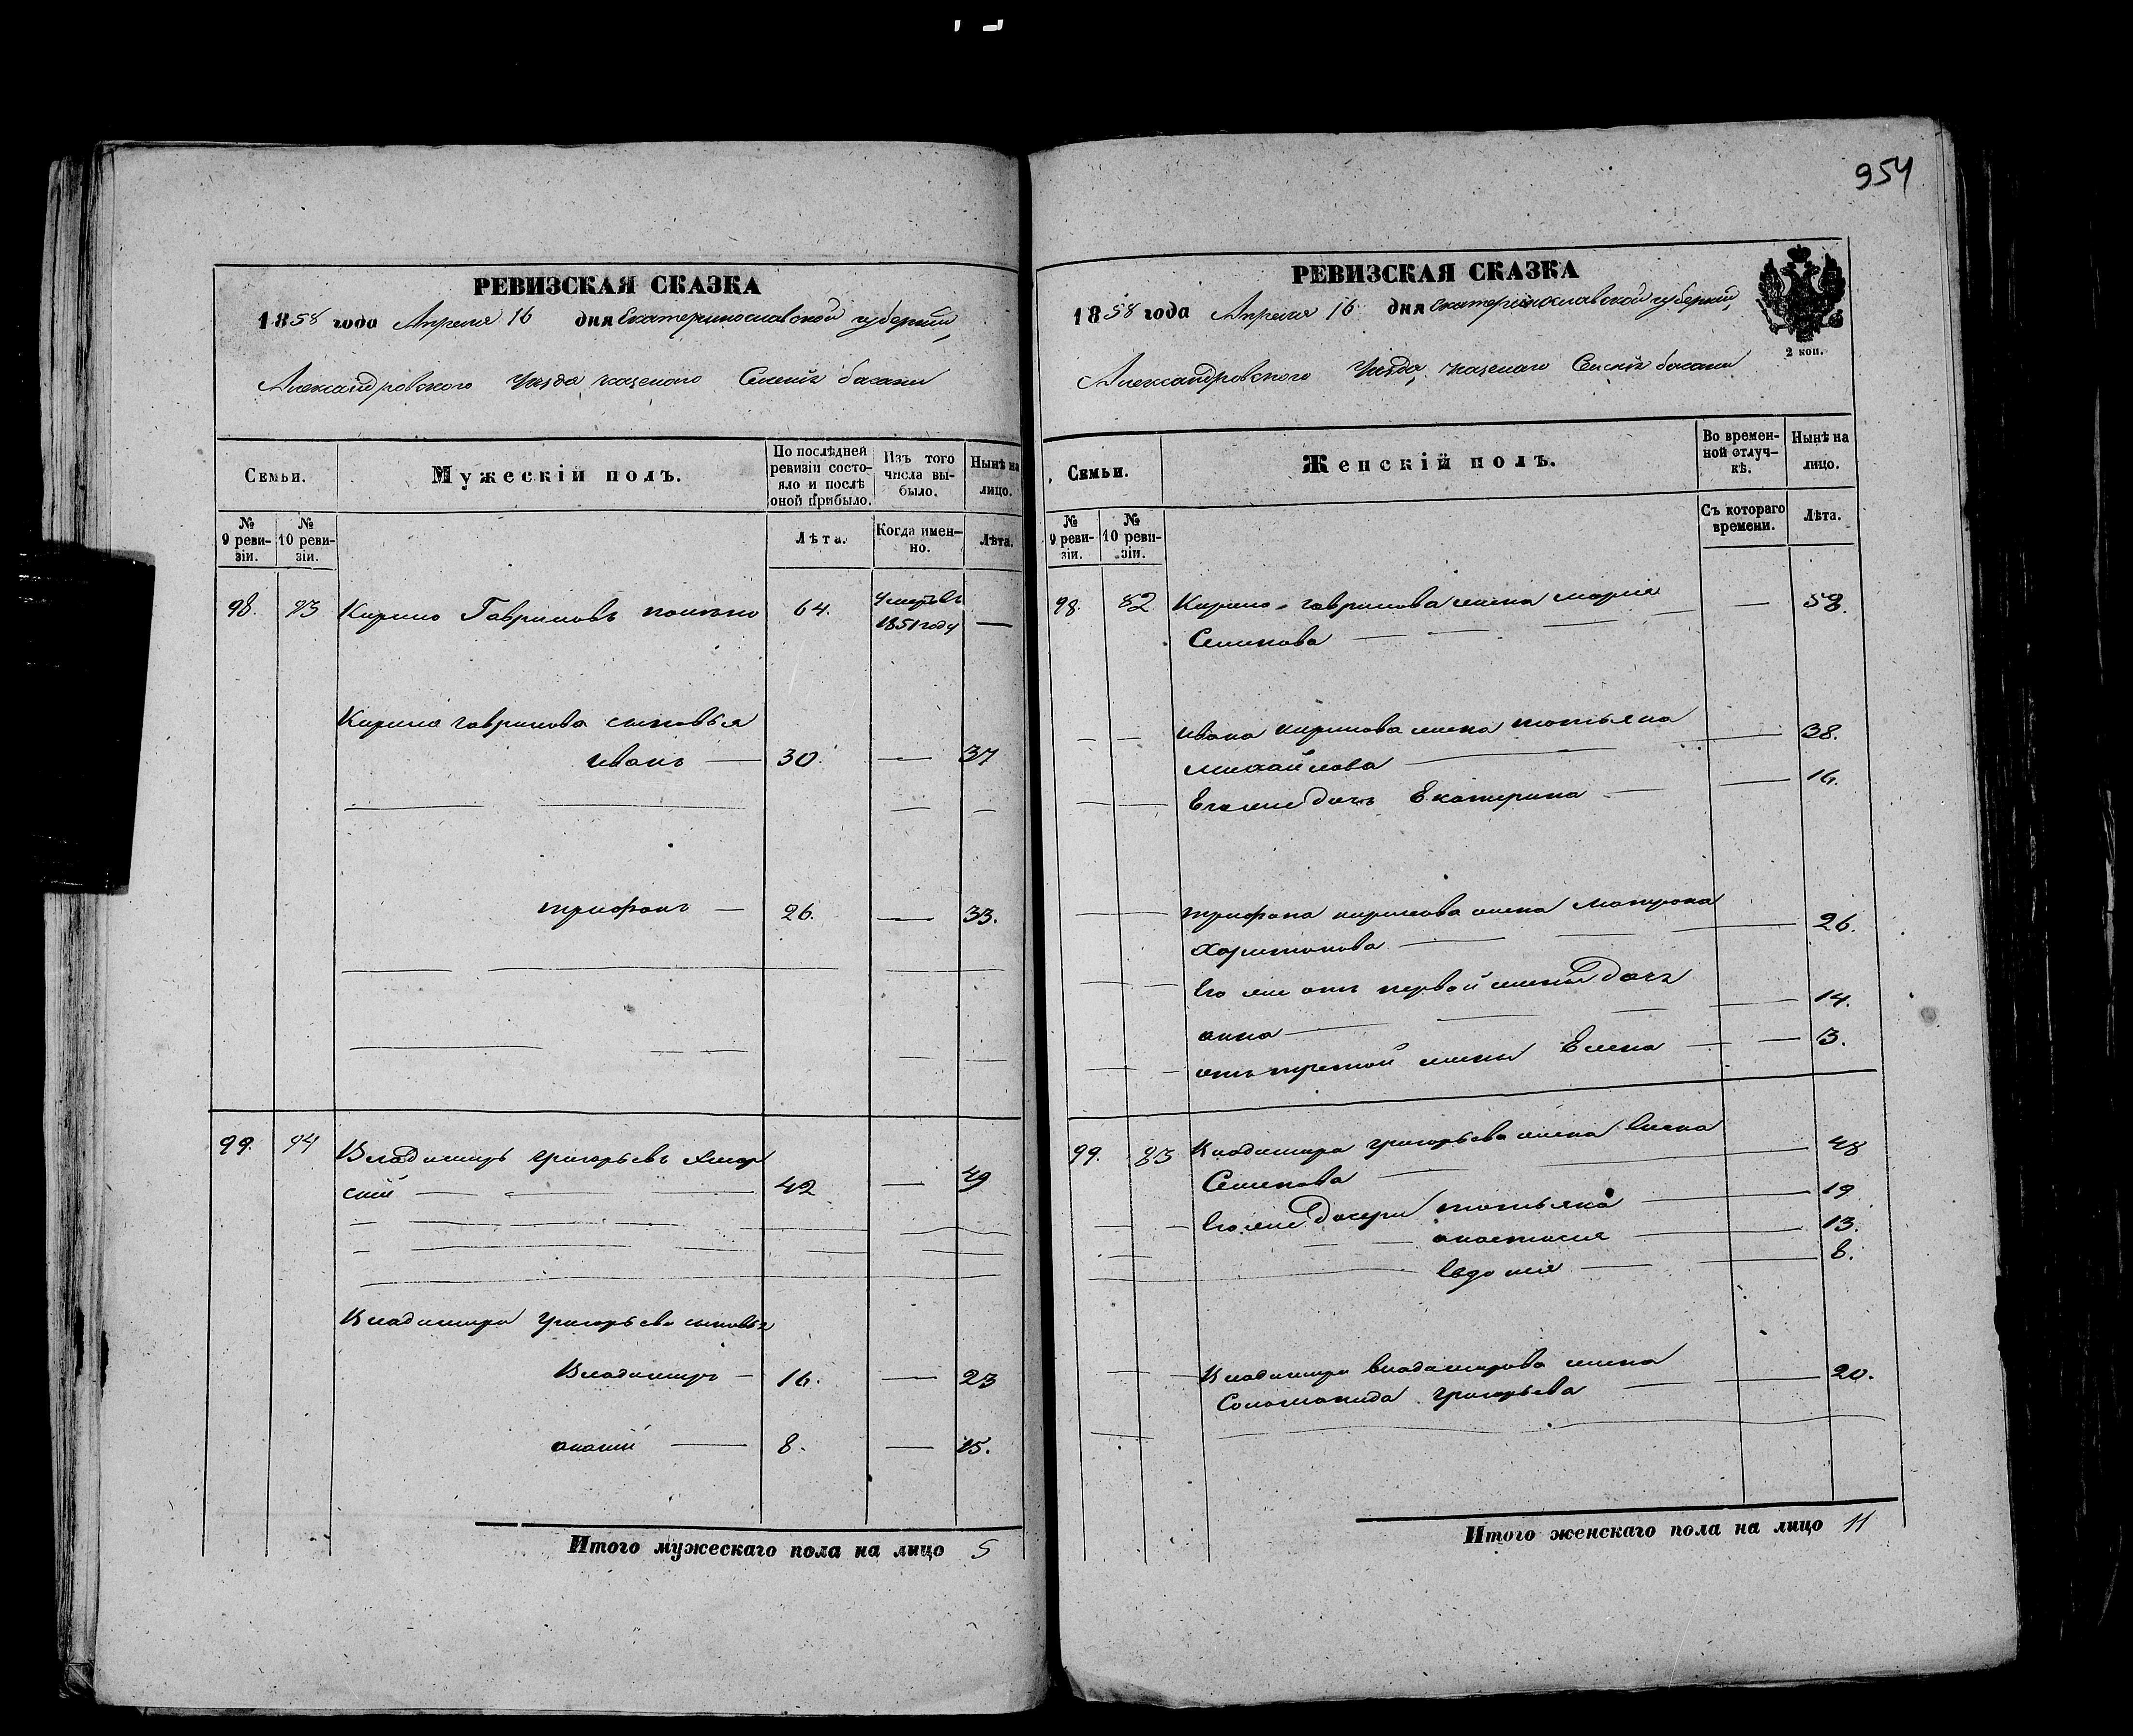 954
РЕВИЗСКАЯ СКАЗКА
1858 года Апреля 16 дня Екатеринославской губернии,
Александровского Уезда, казенаго Селенія басани
Семьи.
Мужескій полъ.
По послѣдней ревизіи состояло и послѣ оной прибыло.
Изъ того числа выбыло.
Нынѣ на лицо.
№ 9 ревизіи.
№ 10 ревизіи.
Лѣта.
Когда именно.
Лѣта.
98. 93 Кирило Гавриловъ 64. Умеръ въ 1851 году —
Кирила гаврилова сыновья
иванъ — 30. — 37
трифонъ — 26. — 33.
99. 94 Владимиръ григорьевъ
ский — 42 — 49
Владимира григорьева сыновья
Владимиръ — 16. — 23
ананий — 8. — 15.
Итого мужескаго пола на лицо 5
РЕВИЗСКАЯ СКАЗКА
1858 года Апреля 16 дня Екатеринославской губерніи,
2 коп.
Александровского Уезда, казенаго Селенія басани
Семьи.
Женскій полъ.
Во временной отлучкѣ.
Нынѣ на лицо.
№ 9 ревизіи.
№ 10 ревизіи.
Съ котораго времени.
Лѣта.
98. 82 Кирила гаврилова жена марія
Семенова — 58.
ивана кирилова жена татьяна
михайлова — 38.
Его же дочь Екатерина — 16.
трифона кирилова жена Матрона
Харитонова — 26.
Его же отъ первой жены дочь
анна — 14.
отъ третой жены Елена — 3.
99. 83 Владимира григорьева жена Елена
Семенова — 48
Его же дочери татьяна — 19
анастасия — 13.
Евдокия — 8.
Владимира владимирова жена
Соломонида григорьева — 20.
Итого женскаго пола на лицо 11